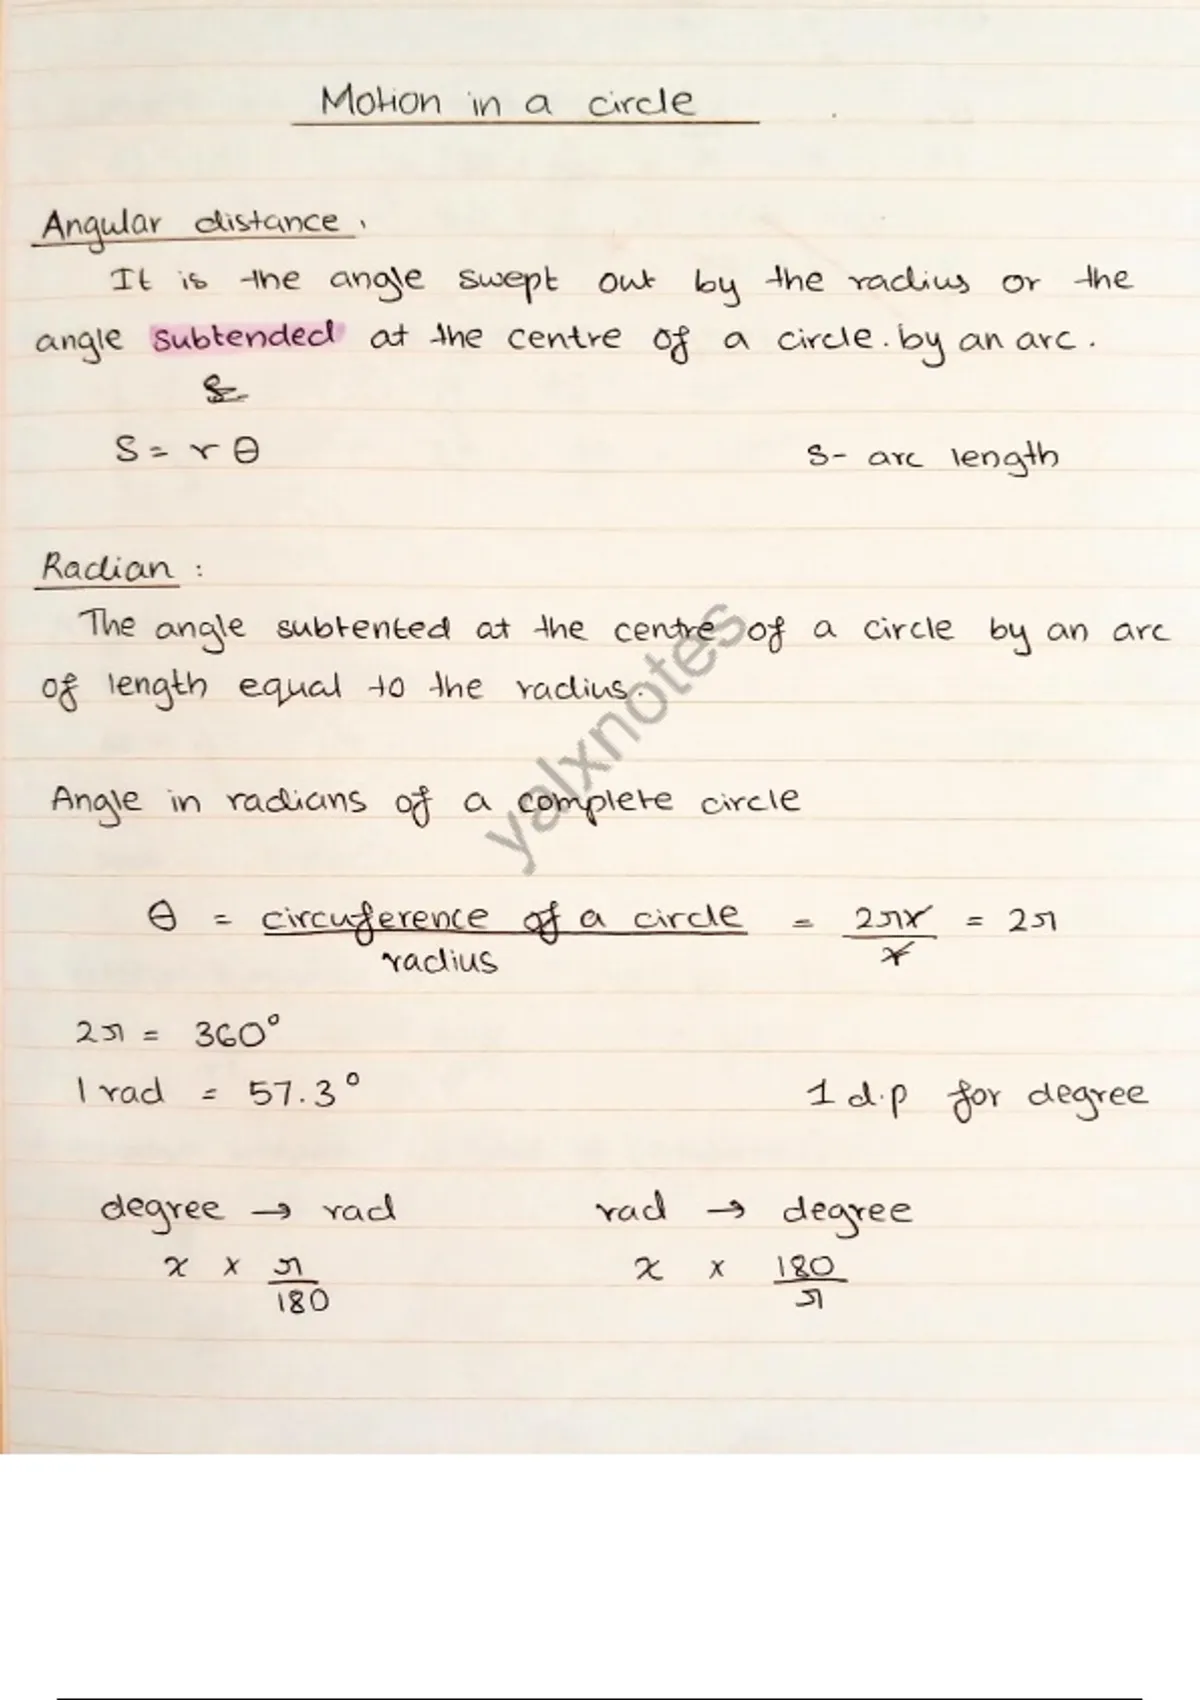 Motion in a circle
Angular distance.
It is the angle swept out by the radius or the
angle subtended at the centre of a circle. by an arc.
S = r θ
s - arc length
Radian :
The angle subtented at the centre of a circle by an arc
of length equal to the radius.
yalxnotes
Angle in radians of a complete circle
θ = circuference of a circle / radius = 2πr / r = 2π
2π = 360°
1 rad = 57.3°
1 d.p for degree
degree → rad
x × π / 180
rad → degree
x × 180 / π